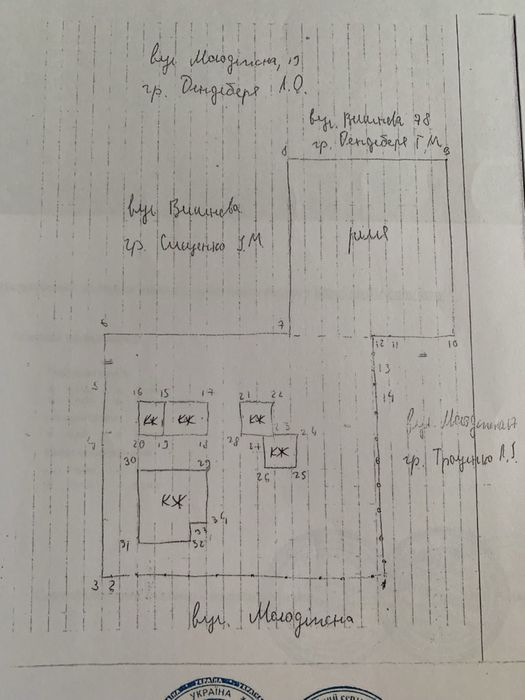 вул Молодіжна, 19
гр. Дендеберя Л.О.
вул. Вишнева 78
гр. Дендеберя Г.М.
8
9
вул Вишнева
гр. Сищенко І.М
рілля
6
7
12
11
10
5
13
14
16
15
17
21
22
КЖ
КЖ
КЖ
23
24
4
20
19
18
28
27
КЖ
26
25
30
29
КЖ
34
33
31
32
гр. Троценко Л.І.
3
2
1
вул. Молодіжна
УКРАЇНА
УКРАЇНА